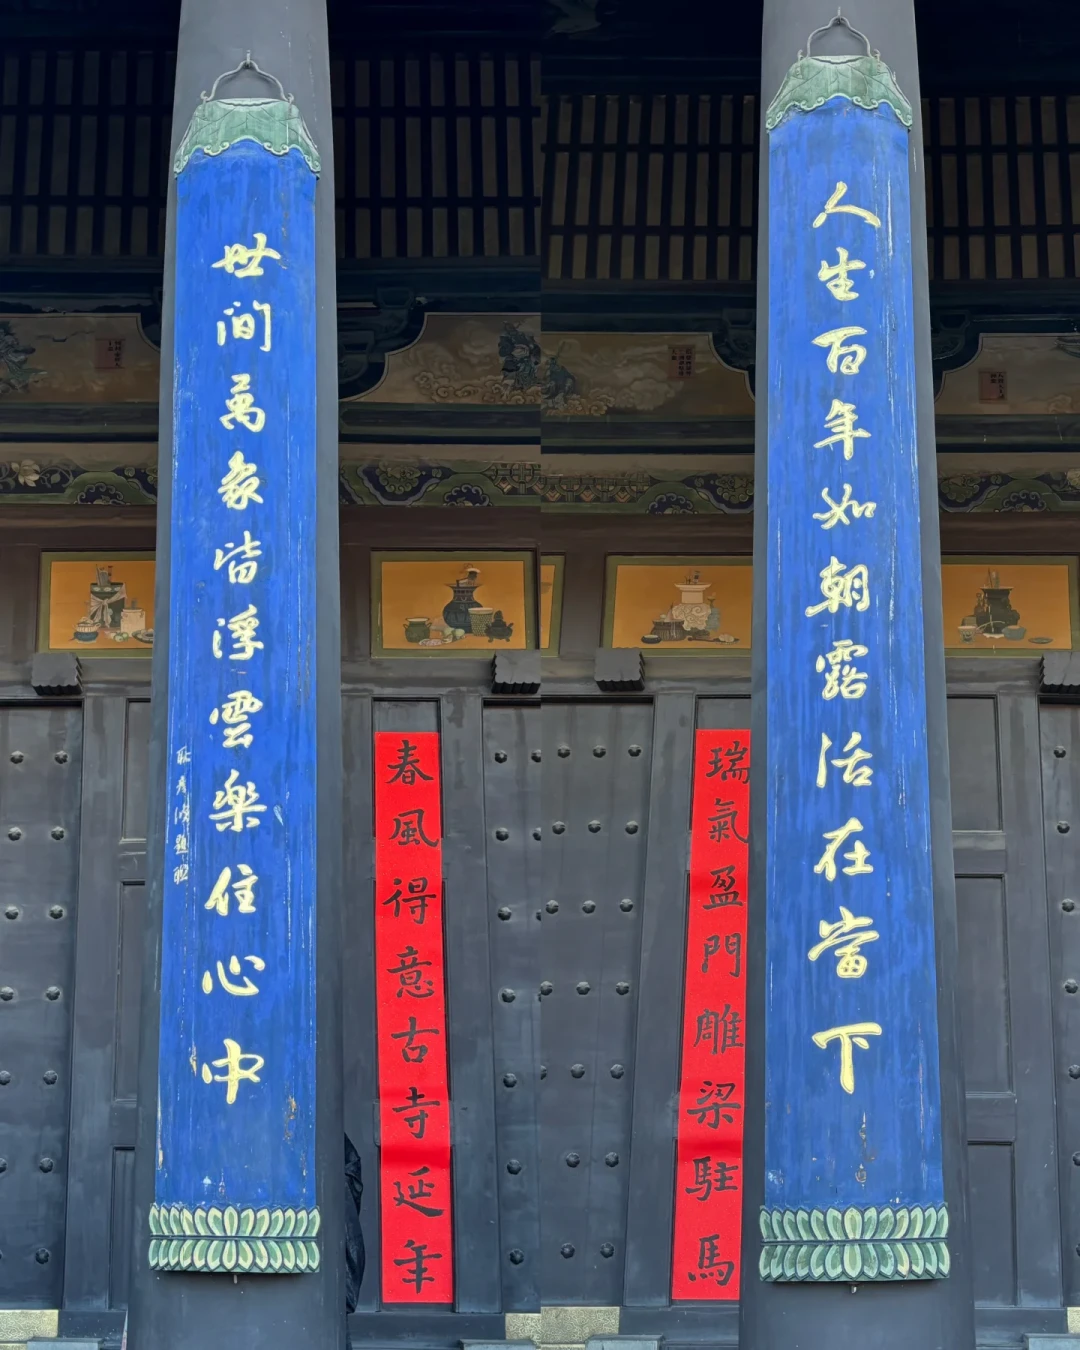 人生百年如朝露活在當下
瑞氣盈門雕梁駐馬
春風得意古寺延年
世間萬象皆浮雲樂住心中
耿彥波題聯